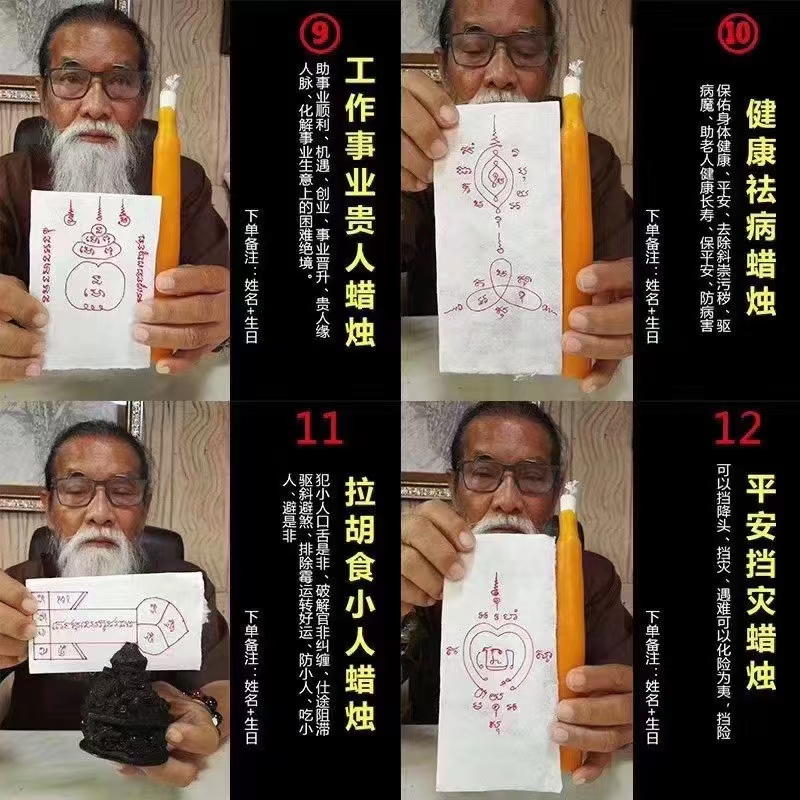 ⑨
工作事业贵人蜡烛
助事业顺利、机遇、创业、事业晋升、贵人缘
人脉、化解事业生意上的困难绝境。
下单备注：姓名+生日
⑩
健康祛病蜡烛
保佑身体健康、平安、去除斜祟污秽、驱
病魔、助老人健康长寿、保平安、防病害
下单备注：姓名+生日
11
拉胡食小人蜡烛
犯小人口舌是非、破解官非纠缠、仕途阻滞
驱斜避煞、排除霉运转好运、防小人、吃小
人、避是非
下单备注：姓名+生日
12
平安挡灾蜡烛
可以挡降头、挡灾、遇难可以化险为夷，挡险
下单备注：姓名+生日